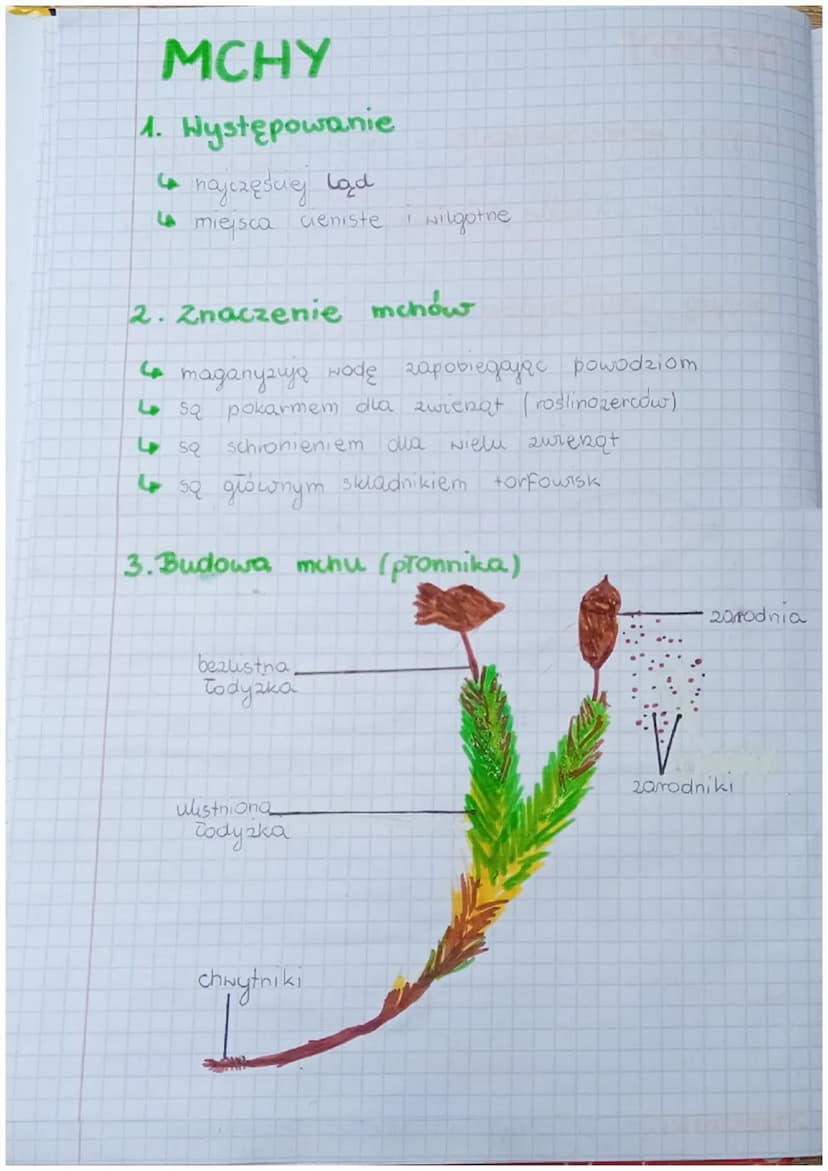 MCHY
1. Występowanie
↳ najczęściej ląd
↳ miejsca cieniste i wilgotne
2. Znaczenie mchów
↳ maganyzują wodę zapobiegając powodziom
↳ są pokarmem dla zwierząt (roślinożerców)
↳ są schronieniem dla wielu zwierząt
↳ są głównym składnikiem torfowisk
3. Budowa mchu (płonnika)
zarodnia
bezlistna
łodyżka
zarodniki
ulistniona
łodyżka
chwytniki